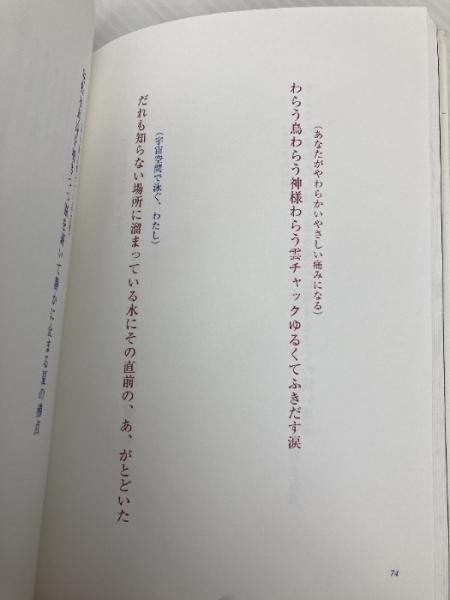 (あなたがやわらかいやさしい痛みになる)
わらう鳥わらう神様わらう雲チャックゆるくてふきだす涙
(宇宙空間で泳ぐ、わたし)
だれも知らない場所に溜まっている水にその直前の、あ、がとどいた
74